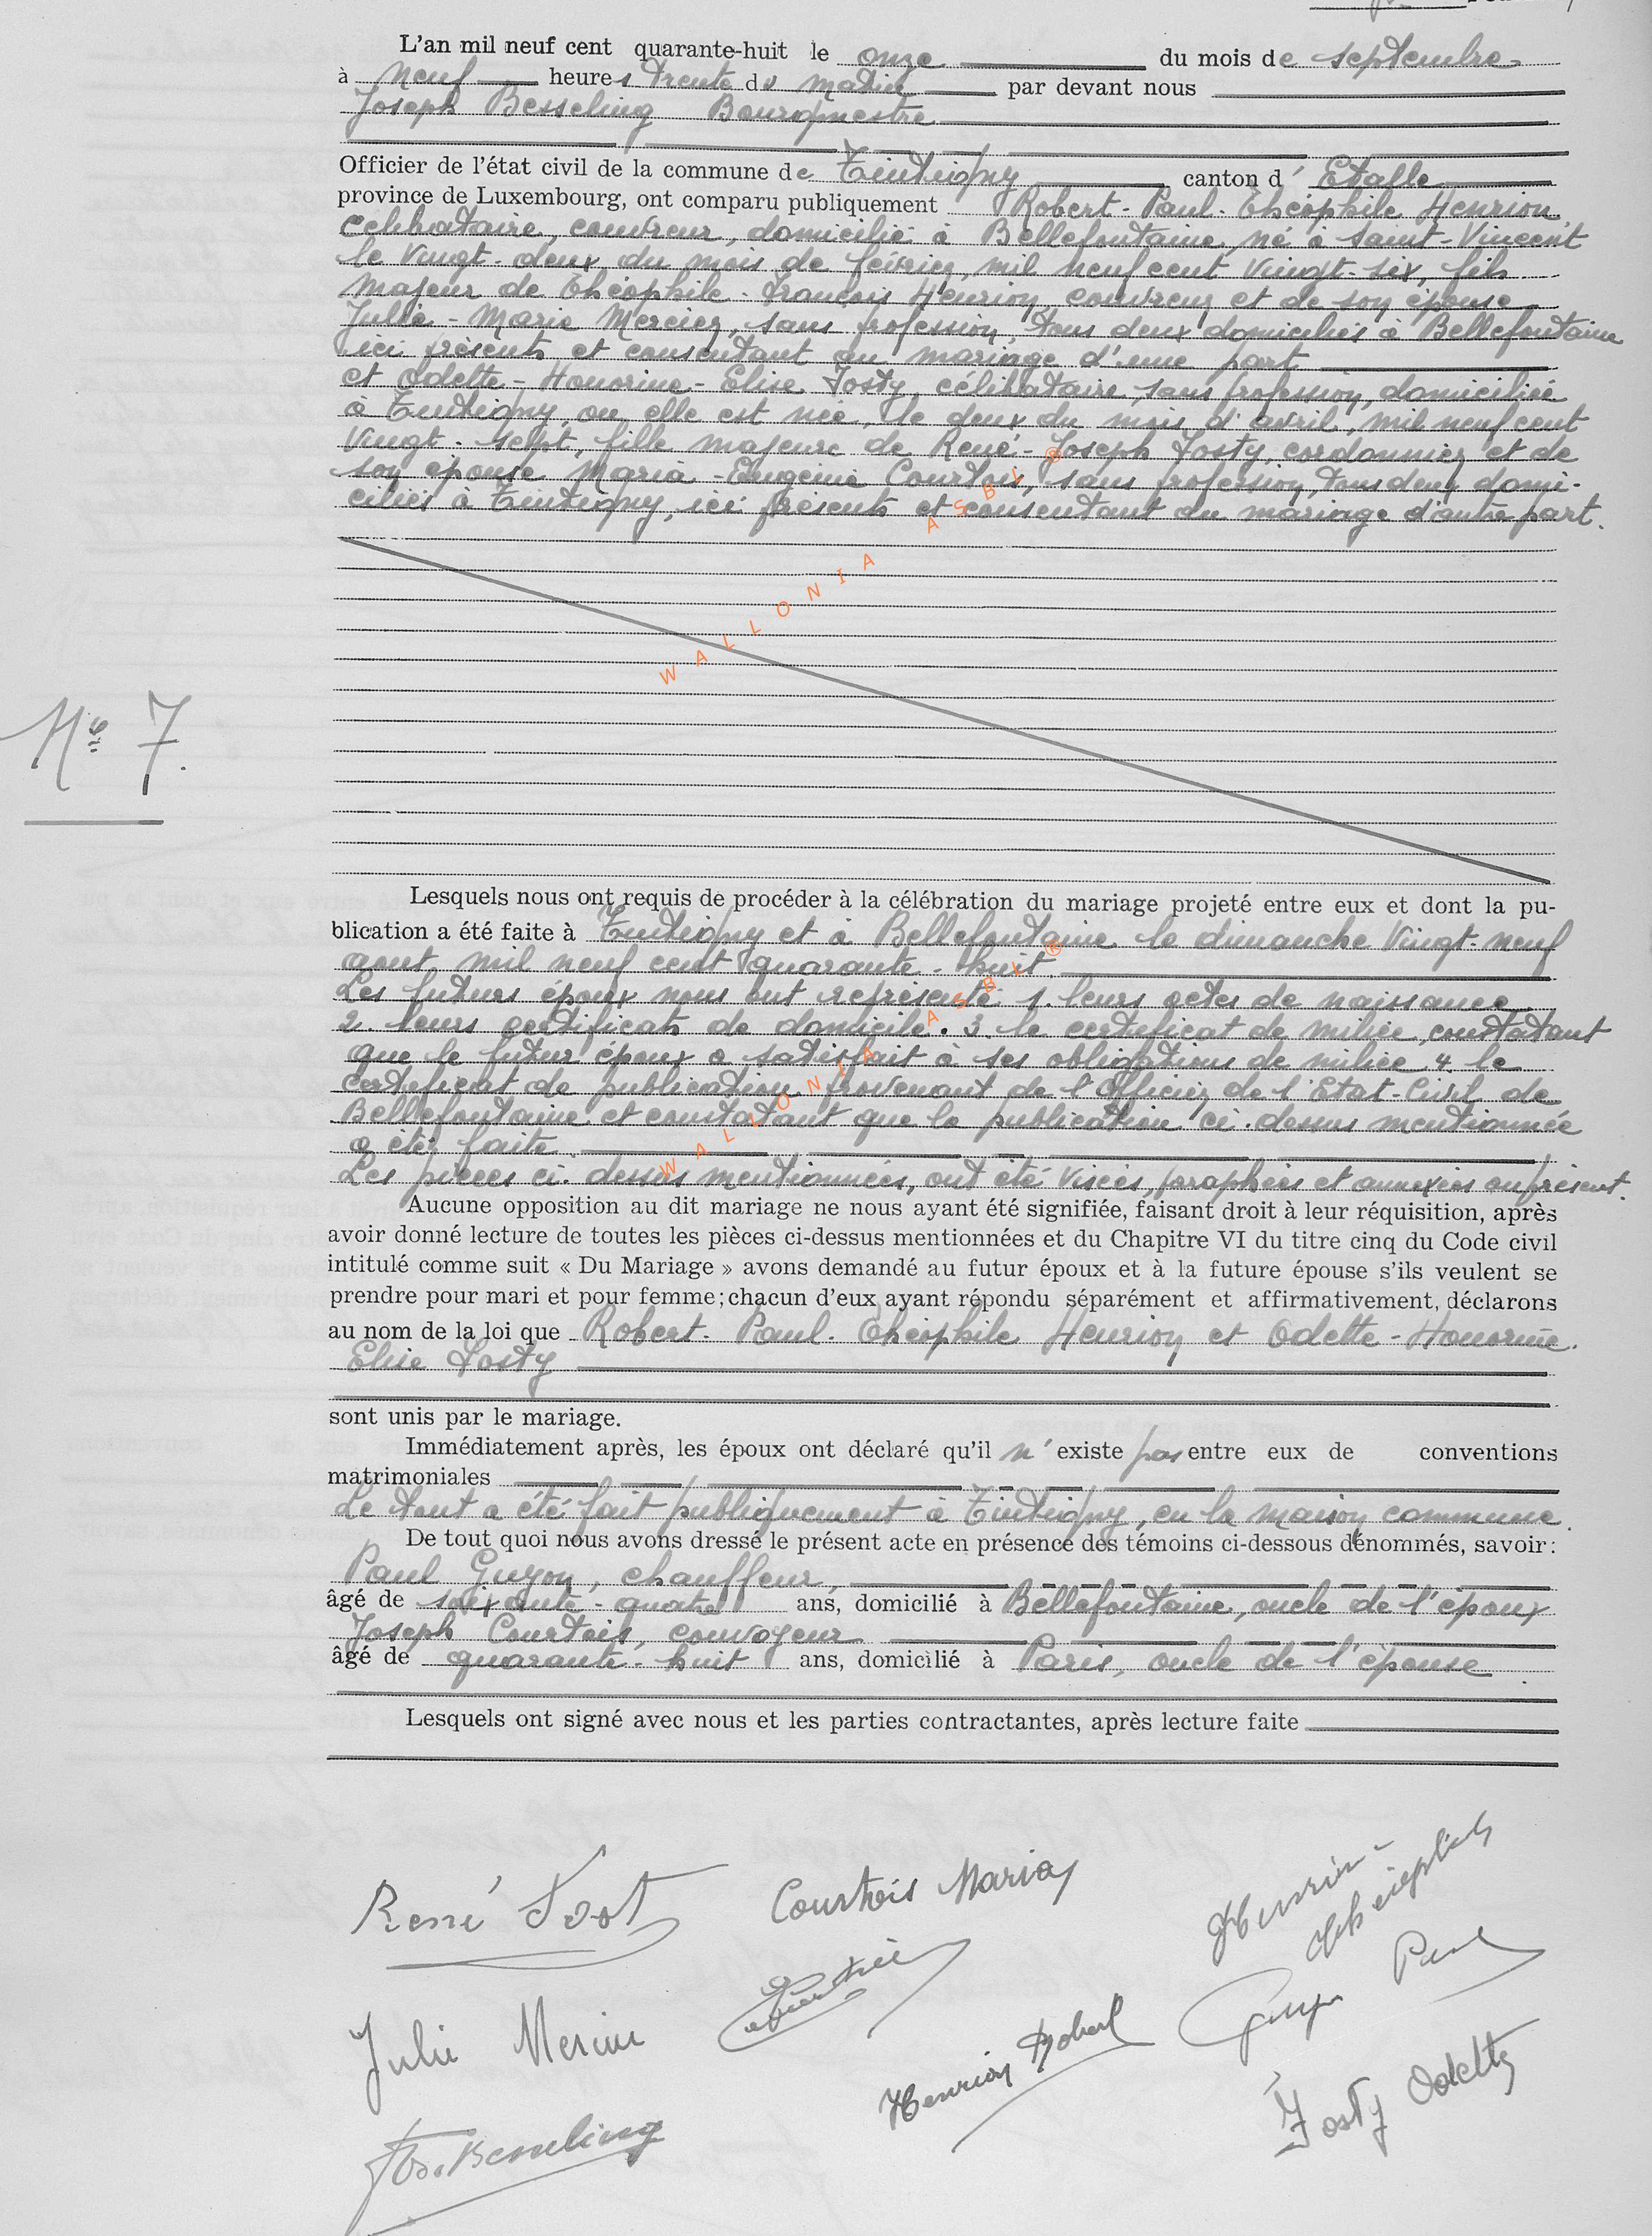 L'an mil neuf cent quarante-huit le onze du mois de septembre
à neuf heures trente du matin par devant nous
Joseph Besseling Bourgmestre
Officier de l'état civil de la commune de Tintigny canton d' Etalle
province de Luxembourg, ont comparu publiquement Robert-Paul-Théophile Henrion,
célibataire, couvreur, domicilié à Bellefontaine, né à Saint-Vincent
le vingt-deux du mois de février, mil neuf cent vingt-six, fils
majeur de Théophile-François Henrion, couvreur et de son épouse
Julie-Marie Mercier, sans profession, tous deux domiciliés à Bellefontaine
ici présents et consentant au mariage d'une part
et Odette-Honorine-Elise Josty, célibataire, sans profession, domiciliée
à Tintigny, ou elle est née, le deux du mois d'avril, mil neuf cent
vingt-sept, fille majeure de René-Joseph Josty, cordonnier et de
son épouse Maria-Eugénie Courtois, sans profession, tous deux domi-
ciliés à Tintigny, ici présents et consentant au mariage d'autre part.
WALLONIA ASBL ®
N° 7.
Lesquels nous ont requis de procéder à la célébration du mariage projeté entre eux et dont la pu-
blication a été faite à Tintigny et à Bellefontaine le dimanche vingt-neuf
aout mil neuf cent quarante-huit.
Les futurs époux nous ont représenté 1. leurs actes de naissance
2. leurs certificats de domicile. 3. le certificat de milice, constatant
que le futur époux a satisfait à ses obligations de milice 4. le
certificat de publication provenant de l'Officier de l'Etat-Civil de
Bellefontaine et constatant que la publication ci-dessus mentionnée
a été faite.
WALLONIA ASBL ®
Les pièces ci-dessus mentionnées, ont été visées, paraphées et annexées au présent.
Aucune opposition au dit mariage ne nous ayant été signifiée, faisant droit à leur réquisition, après
avoir donné lecture de toutes les pièces ci-dessus mentionnées et du Chapitre VI du titre cinq du Code civil
intitulé comme suit « Du Mariage » avons demandé au futur époux et à la future épouse s'ils veulent se
prendre pour mari et pour femme; chacun d'eux ayant répondu séparément et affirmativement, déclarons
au nom de la loi que Robert-Paul-Théophile Henrion et Odette-Honorine
Elise Josty
sont unis par le mariage.
Immédiatement après, les époux ont déclaré qu'il n'existe pas entre eux de conventions
matrimoniales
Le tout a été fait publiquement à Tintigny, en la maison commune.
De tout quoi nous avons dressé le présent acte en présence des témoins ci-dessous dénommés, savoir:
Paul Guyon, chauffeur,
âgé de soixante-quatre ans, domicilié à Bellefontaine, oncle de l'époux
Joseph Courtois, convoyeur
âgé de quarante-huit ans, domicilié à Paris, oncle de l'épouse
Lesquels ont signé avec nous et les parties contractantes, après lecture faite
René Jost
Courtois Maria
Henrion
Théophile
Julie Mercier
Henrion Robert
Guyon Paul
Josty Odette
Jos. Besseling